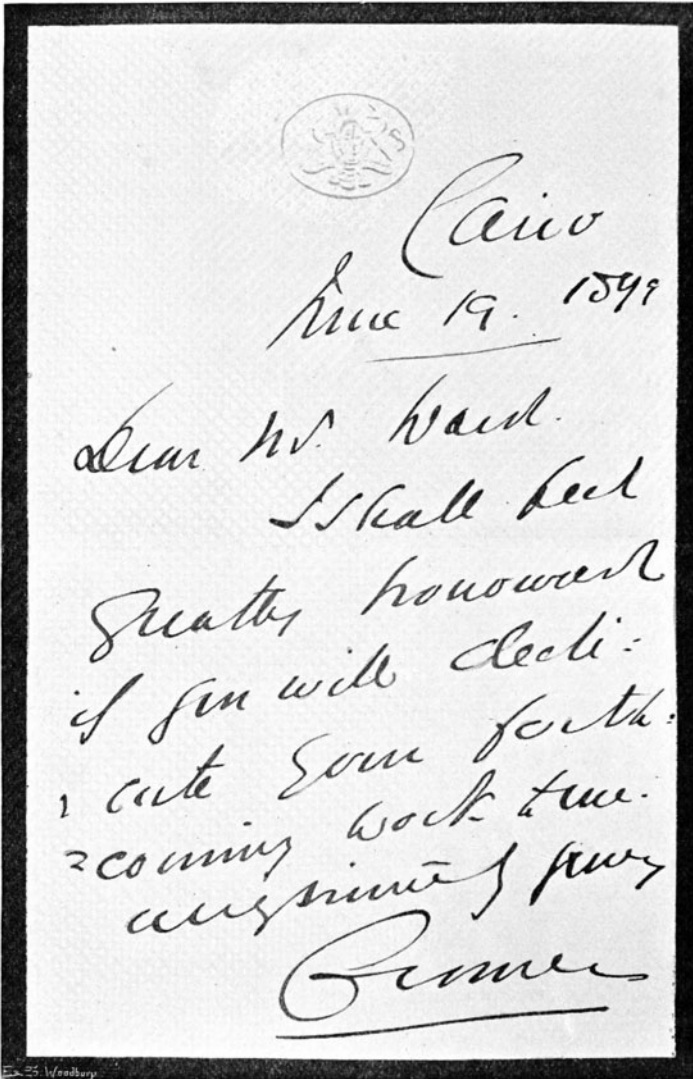 Cairo
June 19. 1899
Dear Mr. Ward.
I shall feel
greatly honoured
if you will dedi-
-cate your forth-
-coming work to me.
Very sincerely yours
Cromer